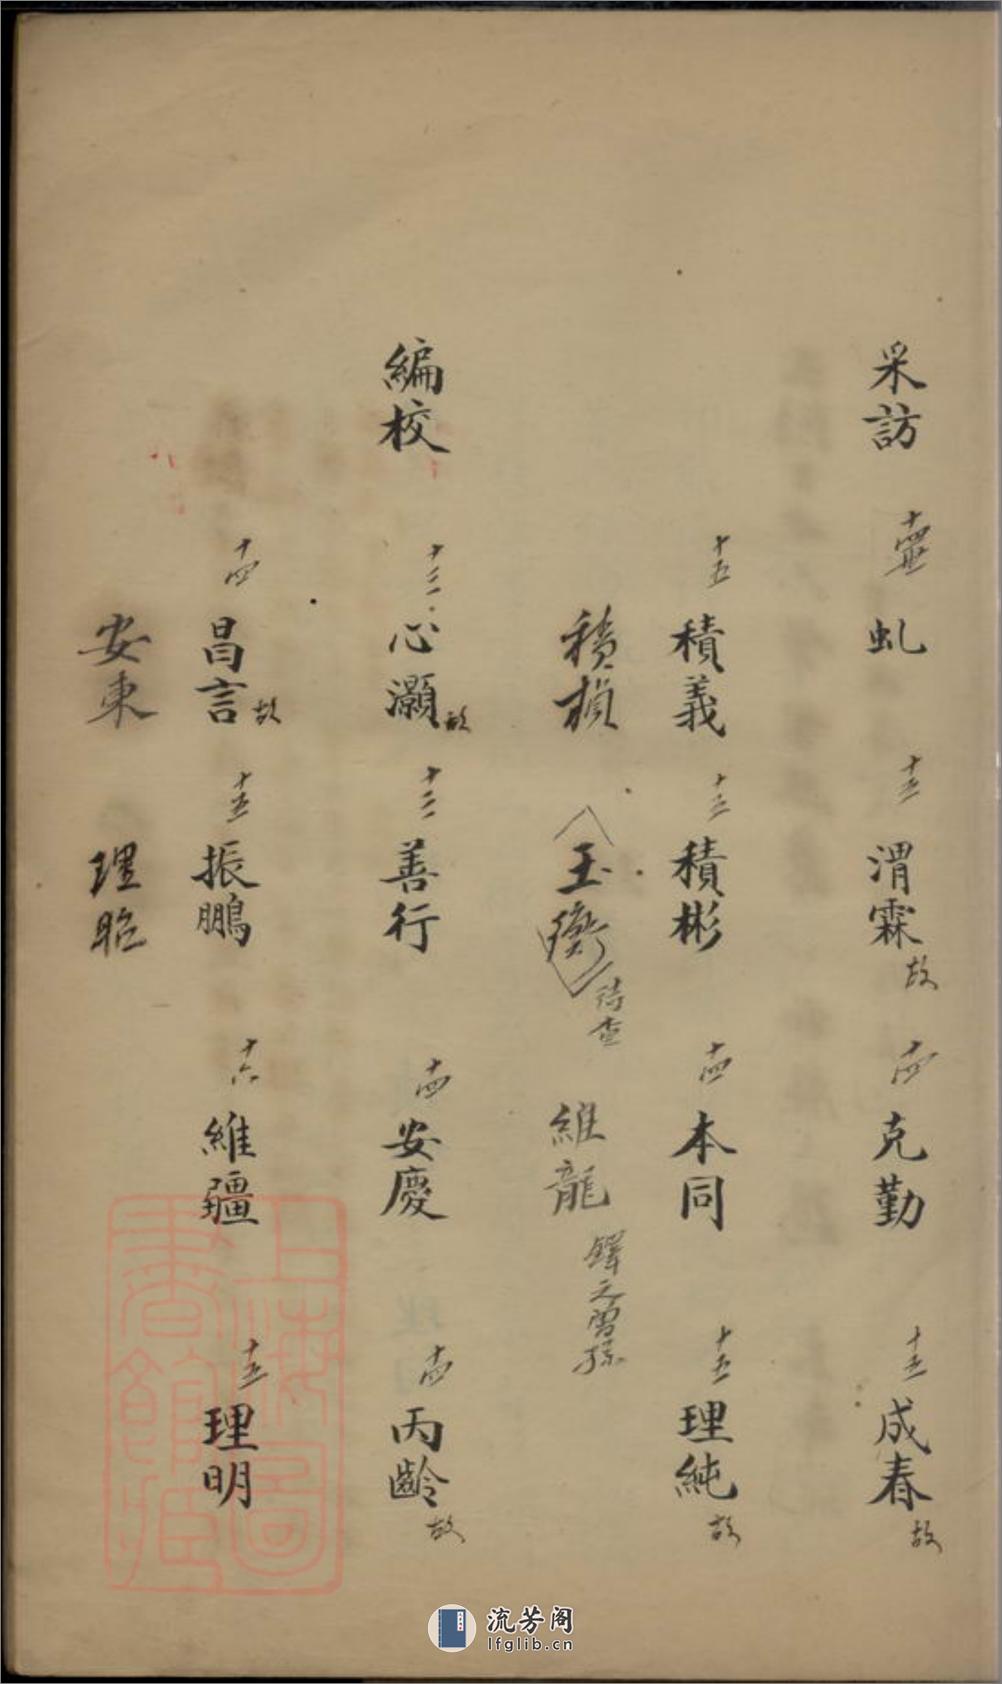 采訪 虬 十五 渭霖 故 十四 克勤 十五 成春 故
十五 積義 十五 積彬 十四 本同 十五 理純 故
積楨 玉衡 待查 維龍 鐸之曾孫
編校 十三 心灝 故 十三 善行 十四 安慶 十四 丙齡 故
十四 昌言 故 十五 振鵬 十六 維疆 十五 理明
安東 理昭
上海圖書館藏
流芳阁
lfglib.cn